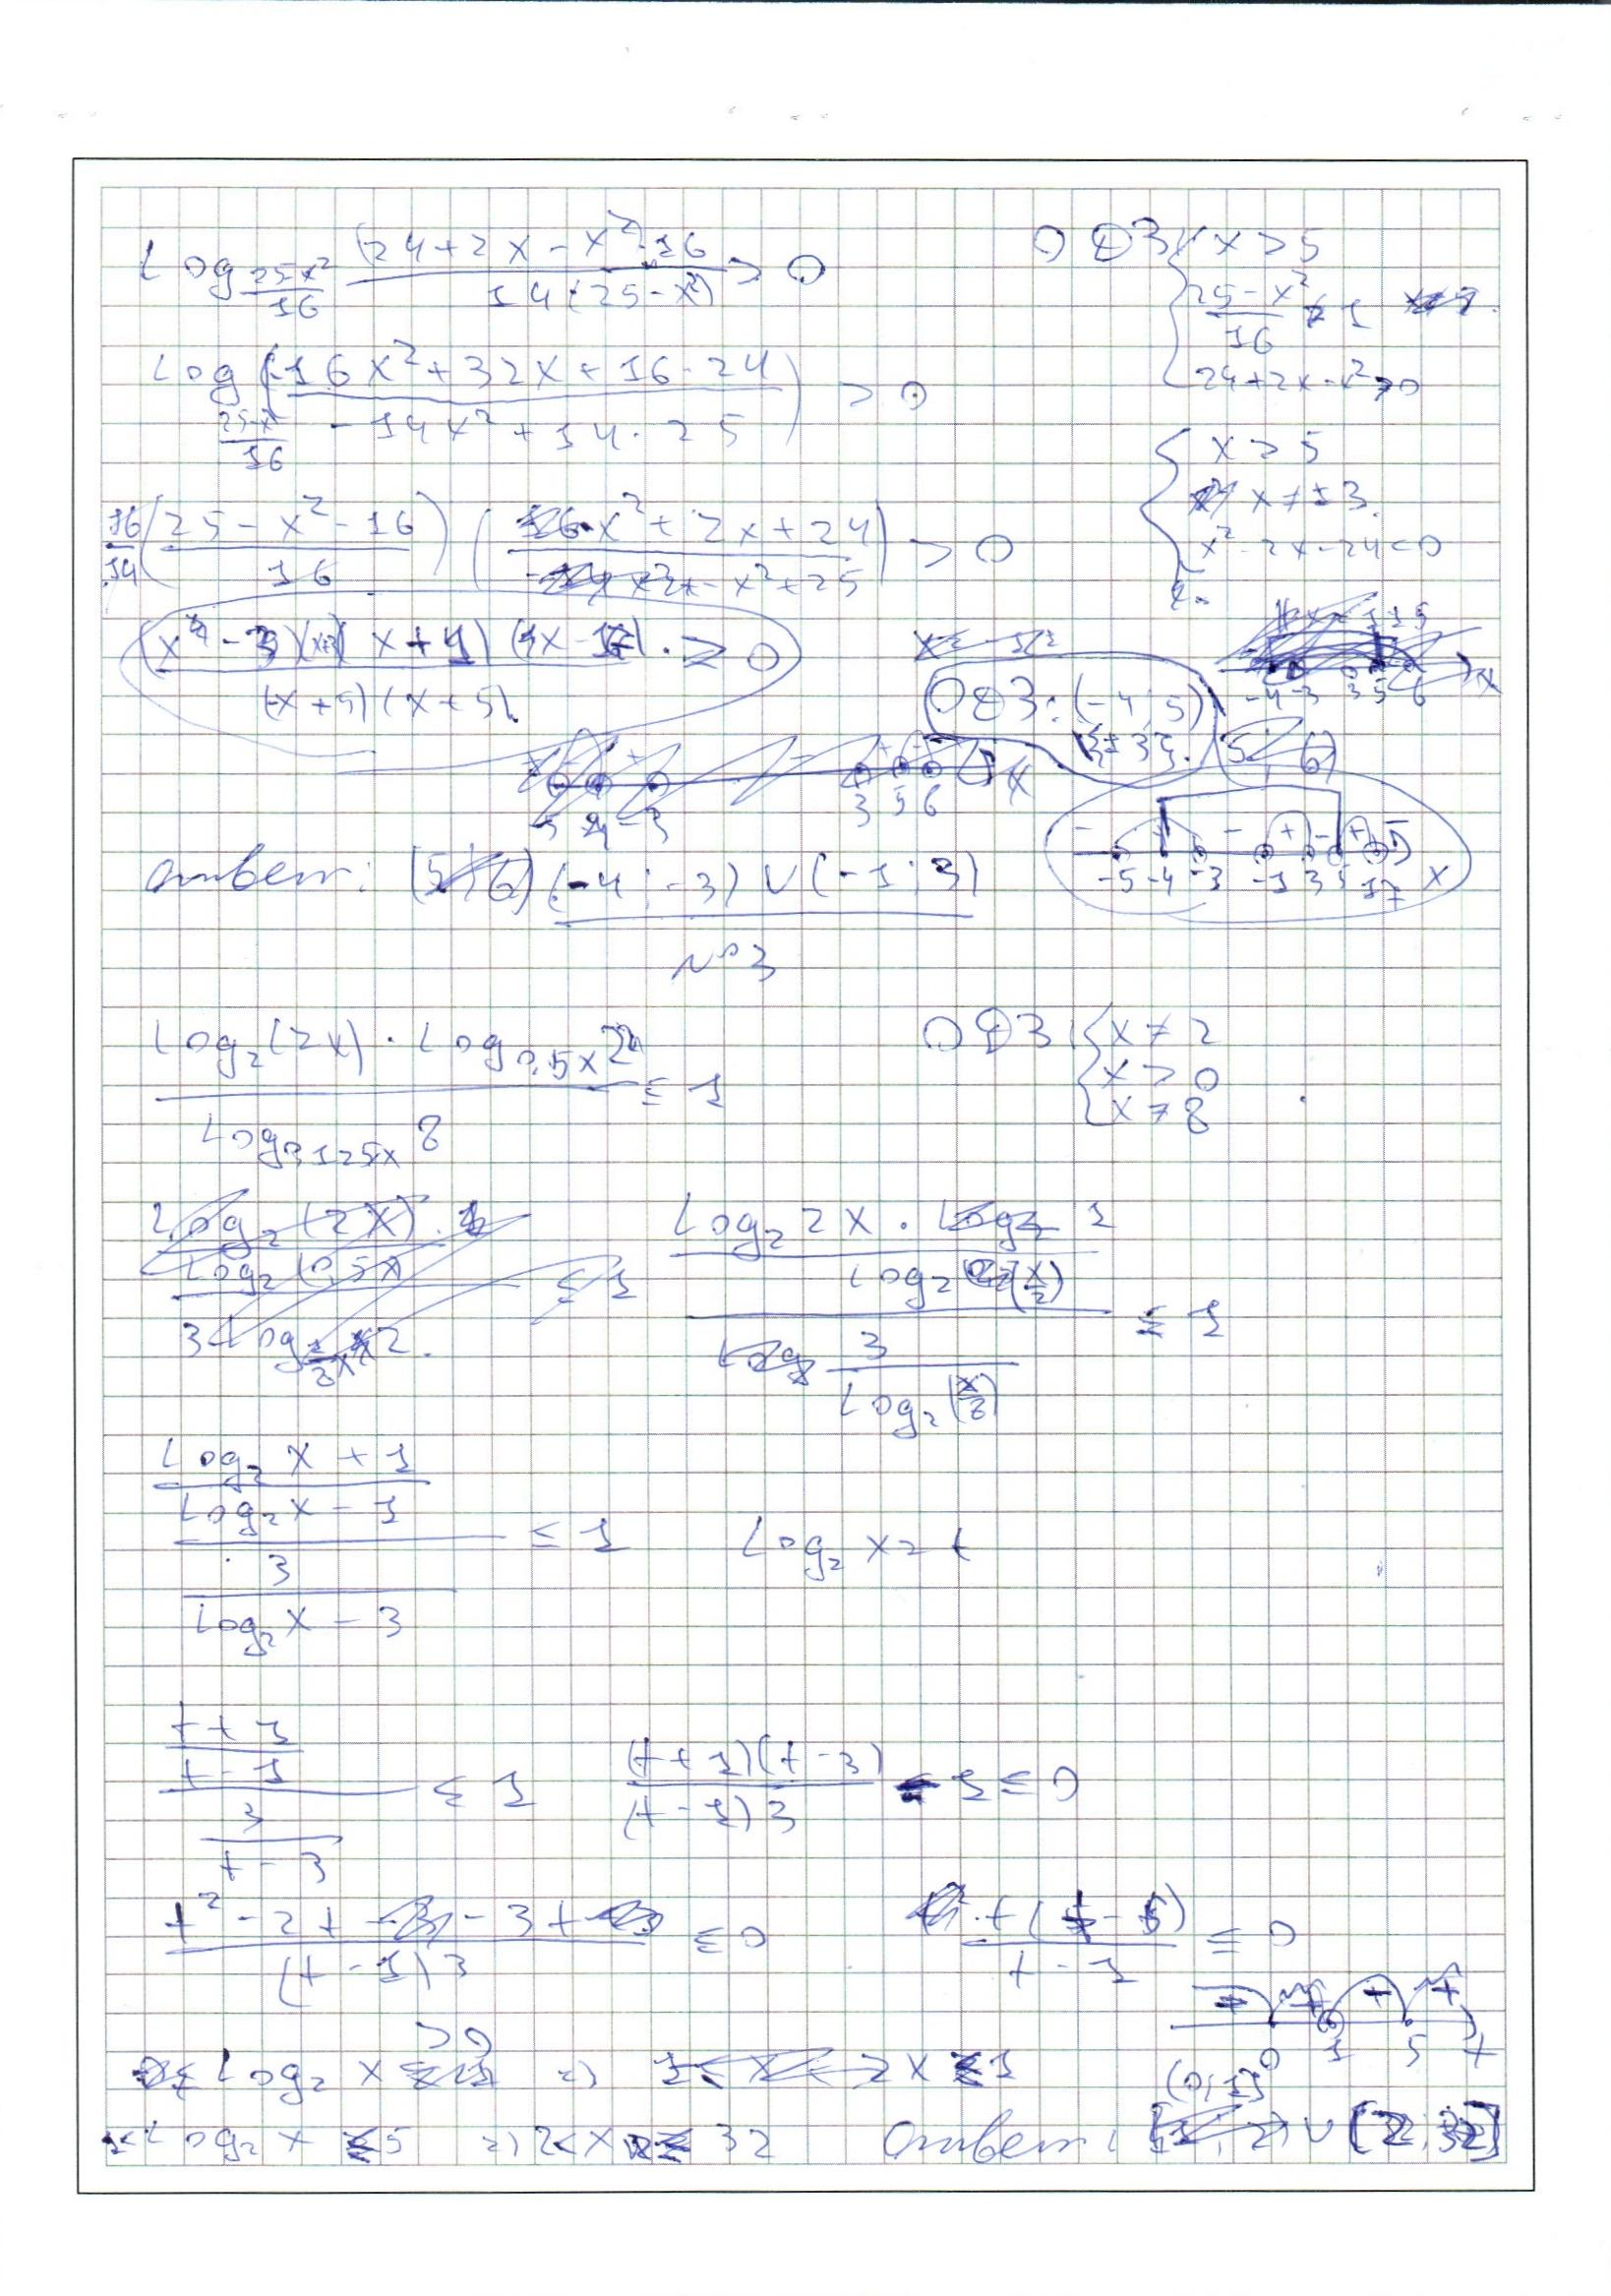 log_{(25-x²)/16} ((24+2x-x²)·16)/(14(25-x²)) > 0
ОДЗ: { x > 5
(25-x²)/16 ≠ 1
24+2x-x² > 0
log_{(25-x²)/16} ((-16x²+32x+16·24)/(-14x²+14·25)) > 0
{ x > 5
x ≠ ±3.
x²-2x-24<0
16/14 ((25-x²-16)/16) ((-x²+2x+24)/(-x²+25)) > 0
-4 -3 3 5 6 x
((x-3)(x+3)(x+1)(x-17))/((-x+5)(x+5)) ≥ 0
ОДЗ: (-4; 5)
{±3}.
3 5 6 x
-5 -4 -3 -1 3 5 17 x
Ответ: (-4; -3) ∪ (-1; 3)
№3
(log₂(2x) · log_{0,5x} 2)/(log_{0,125x} 8) ≤ 1
ОДЗ: { x ≠ 2
x > 0
x ≠ 8
((log₂ 2x · 1)/(log₂ (x/2)))/(3/(log₂ (x/8))) ≤ 1
((log₂ x + 1)/(log₂ x - 1))/(3/(log₂ x - 3)) ≤ 1
log₂ x = t
((t+1)/(t-1))/(3/(t-3)) ≤ 1
((t+1)(t-3))/((t-1)3) - 1 ≤ 0
(t²-2t-3t)/((t-1)3) ≤ 0
(t(t-5))/(t-1) ≤ 0
0 1 5 t
log₂ x
x ≤ 1
1< log₂ x ≤ 5 => 2< x ≤ 32
Ответ: (0; 1] ∪ (2; 32]